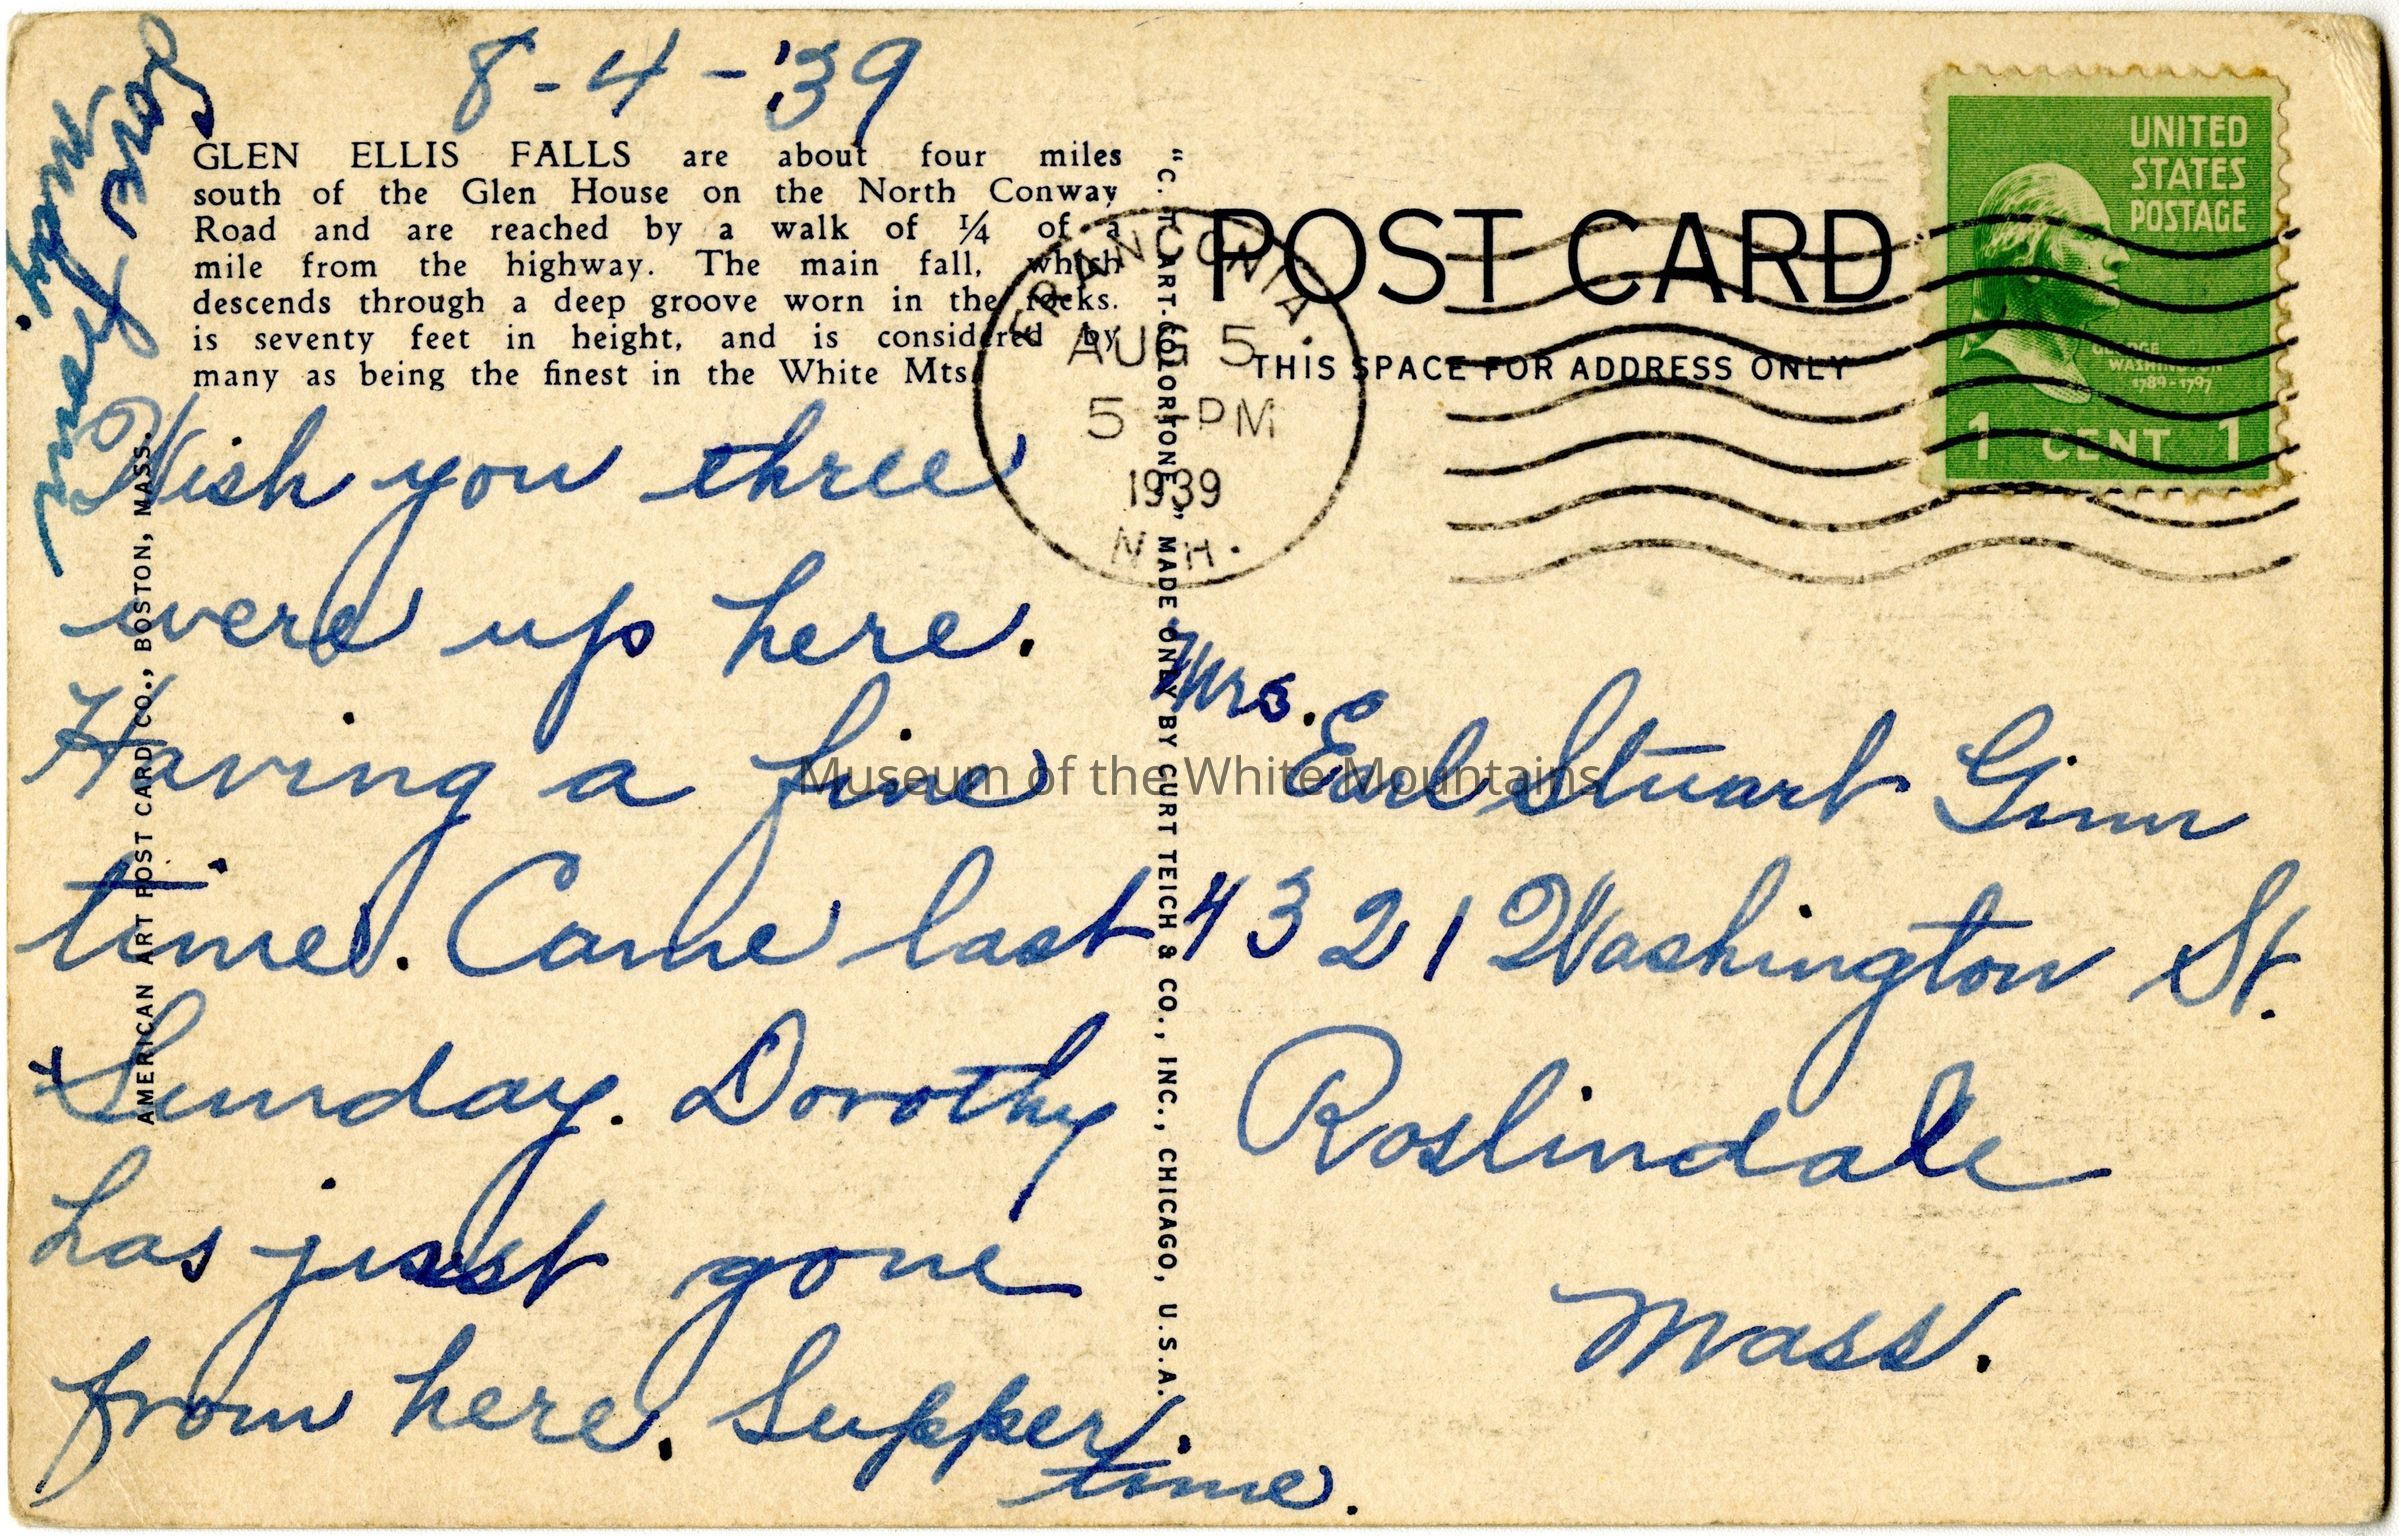 8-4-'39
GLEN ELLIS FALLS are about four miles
south of the Glen House on the North Conway
Road and are reached by a walk of ¼ of a
mile from the highway. The main fall, which
descends through a deep groove worn in the rocks.
is seventy feet in height, and is considered by
many as being the finest in the White Mts.
Wish you three
were up here.
Having a fine
time. Came last
Sunday. Dorothy
has just gone
from here. Supper
time.
Love
AMERICAN ART POST CARD CO., BOSTON, MASS.
"C. T. ART-COLORTONE" MADE ONLY BY CURT TEICH & CO., INC., CHICAGO, U.S.A.
POST CARD
THIS SPACE FOR ADDRESS ONLY
FRANCONIA.
AUG 5
5 PM
1939
N.H.
UNITED
STATES
POSTAGE
GEORGE
WASHINGTON
1789-1797
1 CENT 1
Mrs.
Earl Stuart Ginn
4321 Washington St.
Roslindale
Mass.
Museum of the White Mountains